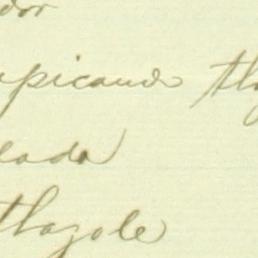 dor
upicando tla
lada
thazole